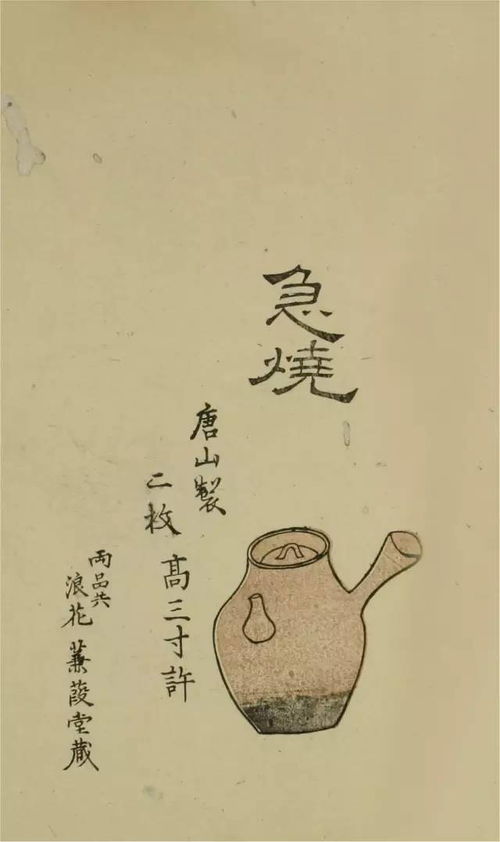 急燒
唐山製
二枚 高三寸許
両品共
浪花 蒹葭堂蔵